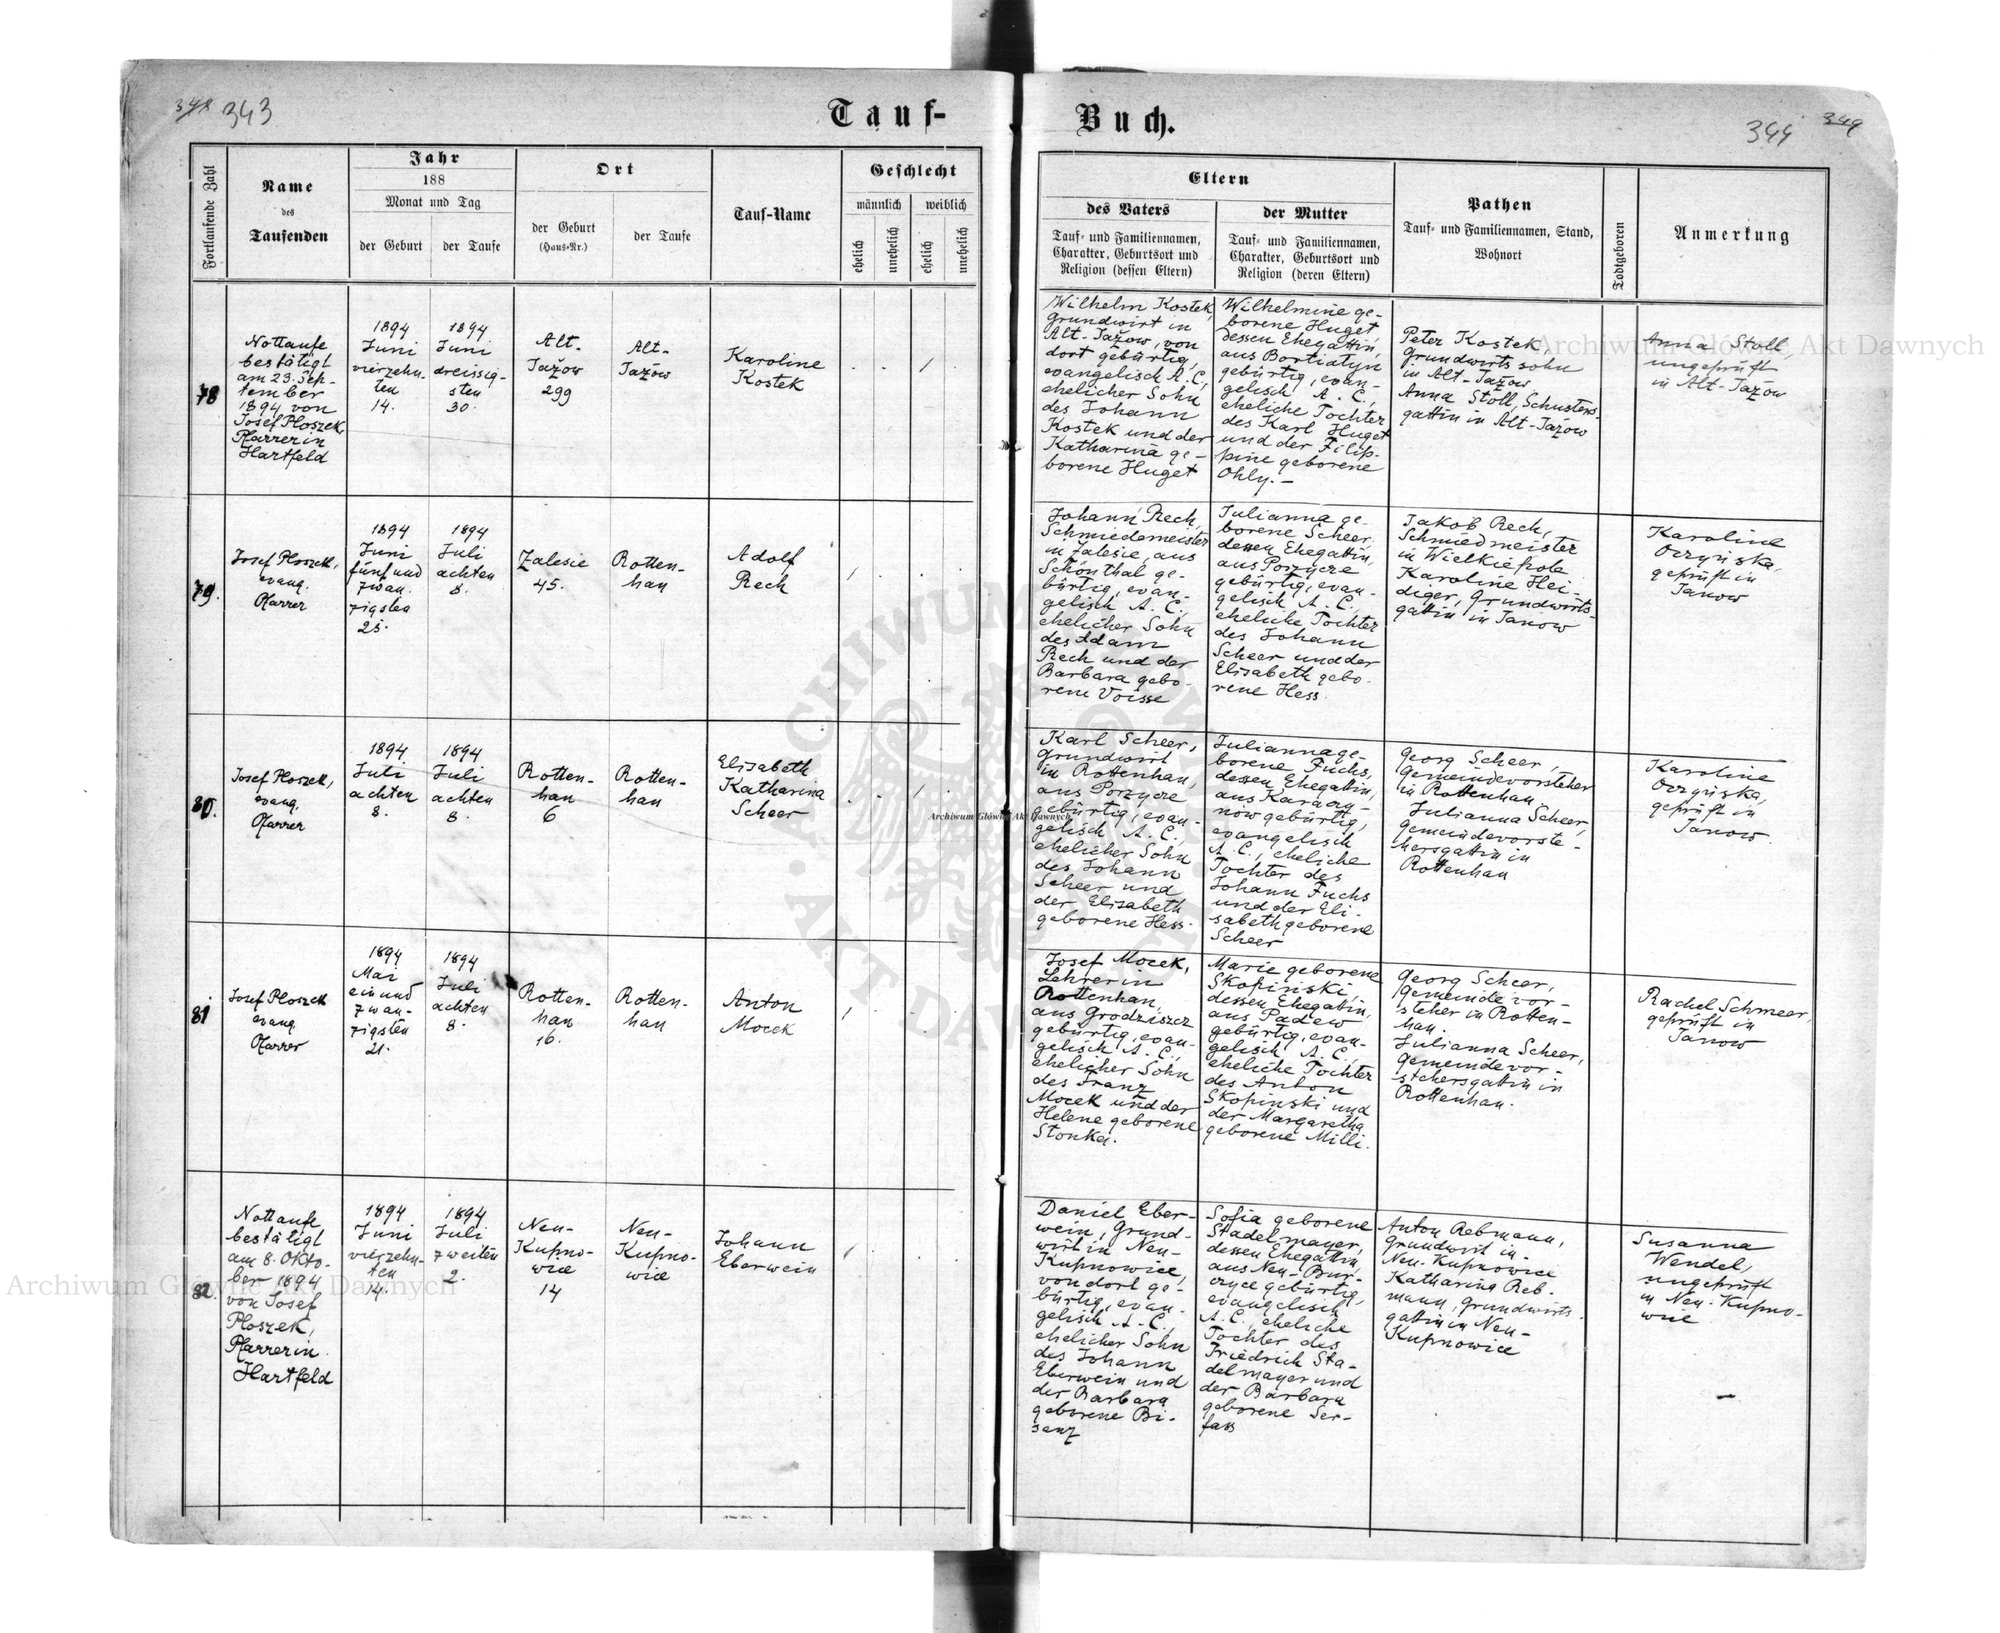 348 343
Tauf-
Buch.
344 349
Fortlaufende Zahl
Name
des
Taufenden
Jahr
188
Monat und Tag
der Geburt
der Taufe
Ort
der Geburt
(Haus-Nr.)
der Taufe
Tauf-Name
Geschlecht
männlich
weiblich
ehelich
unehelich
ehelich
unehelich
Eltern
des Vaters
Tauf- und Familiennamen,
Charakter, Geburtsort und
Religion (dessen Eltern)
der Mutter
Tauf- und Familiennamen,
Charakter, Geburtsort und
Religion (deren Eltern)
Pathen
Tauf- und Familiennamen, Stand,
Wohnort
Todtgeboren
Anmerkung
78
Nottaufe
bestätigt
am 23. Sep-
tember
1894 von
Josef Ploszek,
Pfarrer in
Hartfeld
1894
Juni
vierzehn-
ten
14.
1894
Juni
dreissig-
sten
30.
Alt-
Jažow
299
Alt-
Jažow
Karoline
Kostek
Wilhelm Kostek,
Grundwirt in
Alt-Jažow, von
dort gebürtig,
evangelisch A. C.,
ehelicher Sohn
des Johann
Kostek und der
Katharina ge-
borene Huget
Wilhelmine ge-
borene Huget
dessen Ehegattin,
aus Bortiatyn
gebürtig, evan-
gelisch A. C.,
eheliche Tochter
des Karl Huget
und der Filip-
pine geborene
Ohly. -
Peter Kostek,
Grundwirts sohn
in Alt-Jažow
Anna Stoll, Schusters-
gattin in Alt-Jažow
Anna Stoll
ungeprüft
in Alt-Jažow
79.
Josef Ploszek,
evang.
Pfarrer
1894
Juni
fünf und
zwan-
zigsten
25.
1894
Juli
achten
8.
Zalesie
45.
Rotten-
han
Adolf
Rech
Johann Rech,
Schmiedemeister
in Zalesie, aus
Schönthal ge-
bürtig, evan-
gelisch A. C.,
ehelicher Sohn
des Adam
Rech und der
Barbara gebo-
rene Voisse
Julianna ge-
borene Scheer,
dessen Ehegattin,
aus Porzycze
gebürtig, evan-
gelisch A. C.,
eheliche Tochter
des Johann
Scheer und der
Elisabeth gebo-
rene Hess.
Jakob Rech,
Schmiedmeister
in Wielkiepole
Karoline Hei-
diger, Grundwirts-
gattin in Janow
Karoline
Oczyńska,
geprüft in
Janow
80.
Josef Ploszek,
evang.
Pfarrer
1894
Juli
achten
8.
1894
Juli
achten
8.
Rotten-
han
6
Rotten-
han
Elisabeth
Katharina
Scheer
Karl Scheer,
Grundwirt
in Rottenhan,
aus Porzycze
gebürtig, evan-
gelisch A. C.,
ehelicher Sohn
des Johann
Scheer und
der Elisabeth
geborene Hess.
Julianna ge-
borene Fuchs,
dessen Ehegattin,
aus Karaczy-
now gebürtig,
evangelisch
A. C., eheliche
Tochter des
Johann Fuchs
und der Eli-
sabeth geborene
Scheer
Georg Scheer,
Gemeindevorsteher
in Rottenhan
Julianna Scheer,
Gemeindevorste-
hersgattin in
Rottenhan
Karoline
Oczyńska,
geprüft in
Janow.
81
Josef Ploszek
evang
Pfarrer
1894
Mai
ein und
zwan-
zigsten
21.
1894
Juli
achten
8.
Rotten-
han
16.
Rotten-
han
Anton
Mocek
Josef Mocek,
Lehrer in
Rottenhan,
aus Grodziszcz
gebürtig, evan-
gelisch A. C.,
ehelicher Sohn
des Franz
Mocek und der
Helene geborene
Stonka.
Marie geborene
Skopinski,
dessen Ehegattin,
aus Padew
gebürtig, evan-
gelisch A. C.,
eheliche Tochter
des Anton
Skopinski und
der Margaretha
geborene Milli.
Georg Scheer,
Gemeindevor-
steher in Rotten-
han.
Julianna Scheer,
Gemeindevor-
stehersgattin in
Rottenhan.
Rachel Schmeer,
geprüft in
Janow
82.
Nottaufe
bestätigt
am 8. Okto-
ber 1894
von Josef
Ploszek,
Pfarrer in
Hartfeld
1894
Juni
vierzehn-
ten
14.
1894
Juli
zweiten
2.
Neu-
Kupno-
wice
14
Neu-
Kupno-
wice
Johann
Eberwein
Daniel Eber-
wein, Grund-
wirt in Neu-
Kupnowice,
von dort ge-
bürtig, evan-
gelisch A. C.,
ehelicher Sohn
des Johann
Eberwein und
der Barbara
geborene Bi-
sanz
Sofia geborene
Stadelmayer,
dessen Ehegattin,
aus Neu-Bur-
czyce gebürtig,
evangelisch
A. C., eheliche
Tochter des
Friedrich Sta-
delmayer und
der Barbara
geborene Ser-
fass
Anton Rebmann,
Grundwirt in
Neu-Kupnowice
Katharina Reb-
mann, Grundwirts-
gattin in Neu-
Kupnowice
Susanna
Wendel,
ungeprüft
in Neu-Kupno-
wice
Archiwum Główne Akt Dawnych
Archiwum Główne Akt Dawnych
Archiwum Główne Akt Dawnych